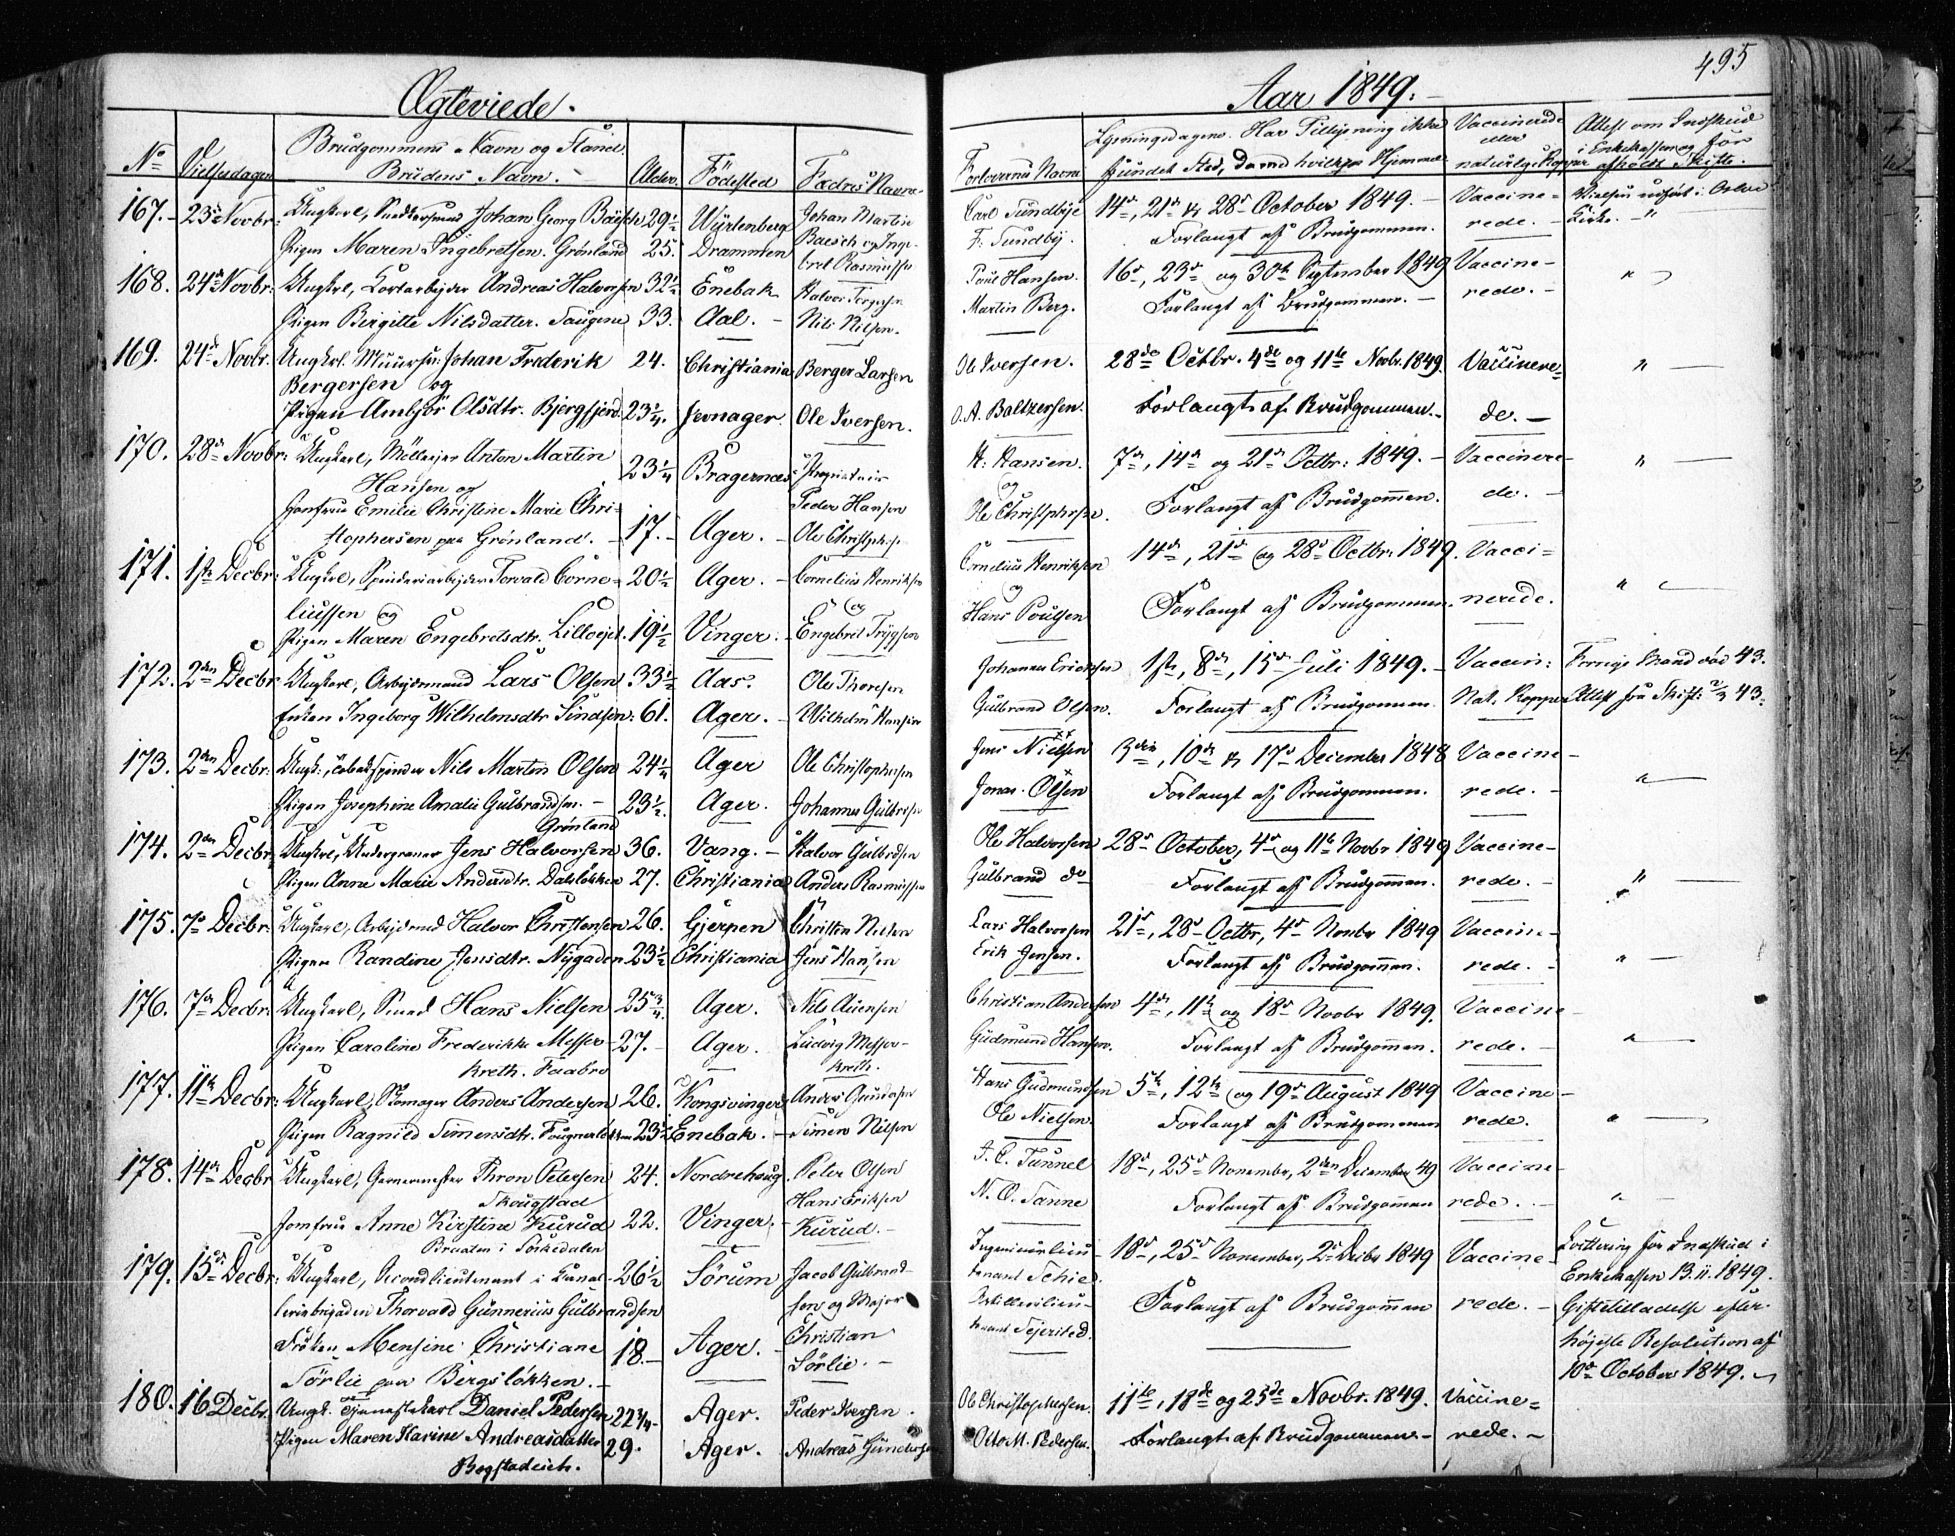 495
Ægteviede.
Aar 1849.
No Vielsesdagen Brudgommens Navn og Stand. Brudens Navn. Alder. Fødested Fadrens Navn
Forlovernes Navne Lysningsdagene. Har Tillysning ikke fundet Sted, da med hvilken Hjemmel Vaccinerede eller naturlige Kopper Attest om Indskud i Enkekassen og for afholdt Skifte.
167. 23de Novbr: Ungkarl, Johan Georg Baesch 29½ Würtenberg Johan Martin
Pigen Maren Ingebretsen. Grønland 25. Drammen Baesch og Inge-
bret Rasmussen
Carl Sundbye 14de, 21de & 28de October 1849. Vaccine- Vielsen udført i Oslo
F. Sundby. Forlangt af Brudgommen. rede. Kirke. "
168. 24de Novbr: Ungkrl, Andreas Halvorsen 32½ Enebak Halvor Torgersen
Pigen Birgitte Nilsdatter. Saugene 33. Aal. Nils Nilsen.
Poul Hansen. 16de, 23de og 30te September 1849 Vaccine- "
Martin Berg. Forlangt af Brudgommen. rede.
169. 24de Novbr. Ungkrl. Muursv: Johan Frederik 24. Christiania Berger Larsen
Bergersen og
Pigen Ambjør Olsdtr. Bjergfjerd. 23¼. Jevnager Ole Iversen.
Ole Iversen. 28de Octbr. 4de og 11te Novbr. 1849. Vaccinere- "
O. A. Baltzersen. Forlangt af Brudgommen. de.
170. 28de Novbr: Ungkarl, Anton Martin 23¼ Bragernæs Proprietair
Hansen og Peder Hansen
Jomfrue Emilie Christine Marie Chri- 17. Ager. Ole Christophersen
stophersen paa Grønland.
H. Hansen. 7de, 14de og 21de Octbr: 1849. Vaccinere- "
og
Ole Christophersen. Forlangt af Brudgommen. de.
171. 1ste Decbr: Ungkrl, Spinderiarbejder Torvald Corne- 20½ Ager. Cornelius Henriksen
liussen og og
Pigen Maren Engebretsdtr. Lilloejet. 19½ Vinger. Engebret Trygsen
Cornelius Henriksen 14de, 21de og 28de Octbr. 1849. Vacci- "
og
Hans Poulsen Forlangt af Brudgommen. nerede.
172. 2den Decbr. Ungkarl, Arbejdsmand Lars Olsen 33½ Aas. Ole Thoresen
Enken Ingeborg Wilhelmsdtr 61. Ager. Wilhelm Hansen
Johannes Ericksen 1ste, 8de, 15de Juli 1849. Vaccin: Forrige Mand død 43.
Gulbrand Olsen. Forlangt af Brudgommen. Nat. Kopper Attest fra Skift: 43.
173. 2den Decbr: Ungk:, Tobakspinder Nils Martin Olsen 24¼ Ager Ole Christophersen
Pigen Josephine Amalie Gulbrandsen. 23½. Ager. Johannes Gulbrandsen
Grønland
Jens Nielsen 3die, 10de & 17de December 1848 Vaccine- "
Jonas Olsen Forlangt af Brudgommen. rede.
174. 2den Decbr. Ungkrl, Jens Halvorsen 36. Vang. Halvor Gulbrandsen
Pigen Anne Marie Andersdtr. Dalsløkken 27. Christiania Anders Rasmussen
Ole Halvorsen 28de October, 4de og 11te Novbr 1849 Vaccine-
Gulbrand do Forlangt af Brudgommen. rede. "
175. 7de Decbr. Ungkarl, Arbejdsmd Halvor Christensen 26. Gjerpen Christen
Pigen Randine Jensdtr. Nygaden 23½ Christiania Jens Hansen
Lars Halvorsen 21de, 28de Octbr, 4de Novbr 1849 Vaccine-
Erik Jensen. Forlangt af Brudgommen. rede. "
176. 7de Decbr: Ungkarl, Smed Hans Nielsen 25¾. Ager. Nils Auensen
Pigen Caroline Frederikke Messer- 27. Ager. Ludvig Messer-
kreth. Faabro kreth.
Christian Andersen 4de, 11te og 18de Novbr 1849. Vaccine-
Gudmund Hansen. Forlangt af Brudgommen. rede. "
177. 11te Decbr: Ungkarl, Skomager Anders Andersen 26. Kongsvinger Anders Gundersen
Pigen Ragnild Simensdtr. 23½ Enebak. Simen Nilsen
Hans Gudmundsen 5te, 12te og 19de August 1849 Vaccine-
Ole Nielsen. Forlangt af Brudgommen rede. "
178. 14de Decbr Ungkarl, Garvermester Thron Petersen 24. Nordrehoug Peter Olsen
Skougstad Hans Eriksen
Jomfrue Anne Kirstine Kurud 22. Vinger. Kurud.
Braaten i Sørkedalen
J. C. Tunnel 18de, 25de November, 2den December 49 Vaccine-
N. O. Sanne Forlangt af Brudgommen rede. "
179. 15de Decbr: Ungkarl, Secondlieutenant i Caval- 26½ Sørum Jacob Gulbrand-
leribrigaden Thorvald Gunnerius Gulbrandsen sen og Major
Frøken Mensine Christiane 18. Ager. Christian
Sørlie paa Bergsløkken. Sørlie.
Ingenieurlieu- 18de, 25de November, 2de Decbr 1849 Vaccine- Qvittering for Indskud i
tenant Schie. Enkekassen 13.11.1849.
Artillerilieu- Forlangt af Brudgommen rede. Giftetilladelse efter
tenant Sejersted. højeste Resolution af
10de October 1849.
180. 16 Decbr. Ungk. Tjenestekarl Daniel Pedersen 22¾ Ager. Peder Iversen.
Pigen Maren Karine Andreasdatter 29. Ager. Andreas Gundersen
Bogstadveien.
Ole Christophersen. 11te, 18de og 25de Novbr. 1849. Vaccine-
Otto M. Pedersen. Forlangt af Brudgommen. rede.